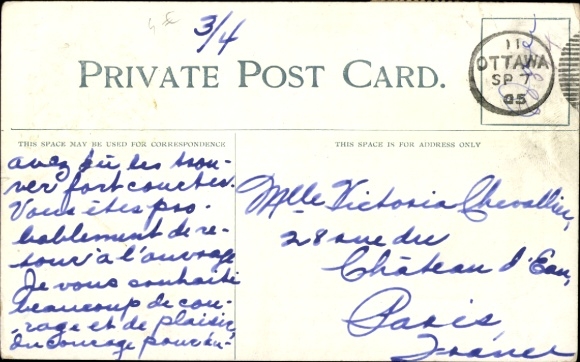 3/4
PRIVATE POST CARD.
11
OTTAWA
SP 7
05
THIS SPACE MAY BE USED FOR CORRESPONDENCE
THIS SPACE IS FOR ADDRESS ONLY
avez dû les trou-
ver fort courtes.
Vous êtes pro-
bablement de re-
tour à l'ouvrage
Je vous souhaite
beaucoup de cou-
rage et de plaisir,
Du courage pour
Mlle Victoria Chevallier,
28 rue du
Château d'Eau,
Paris,
France